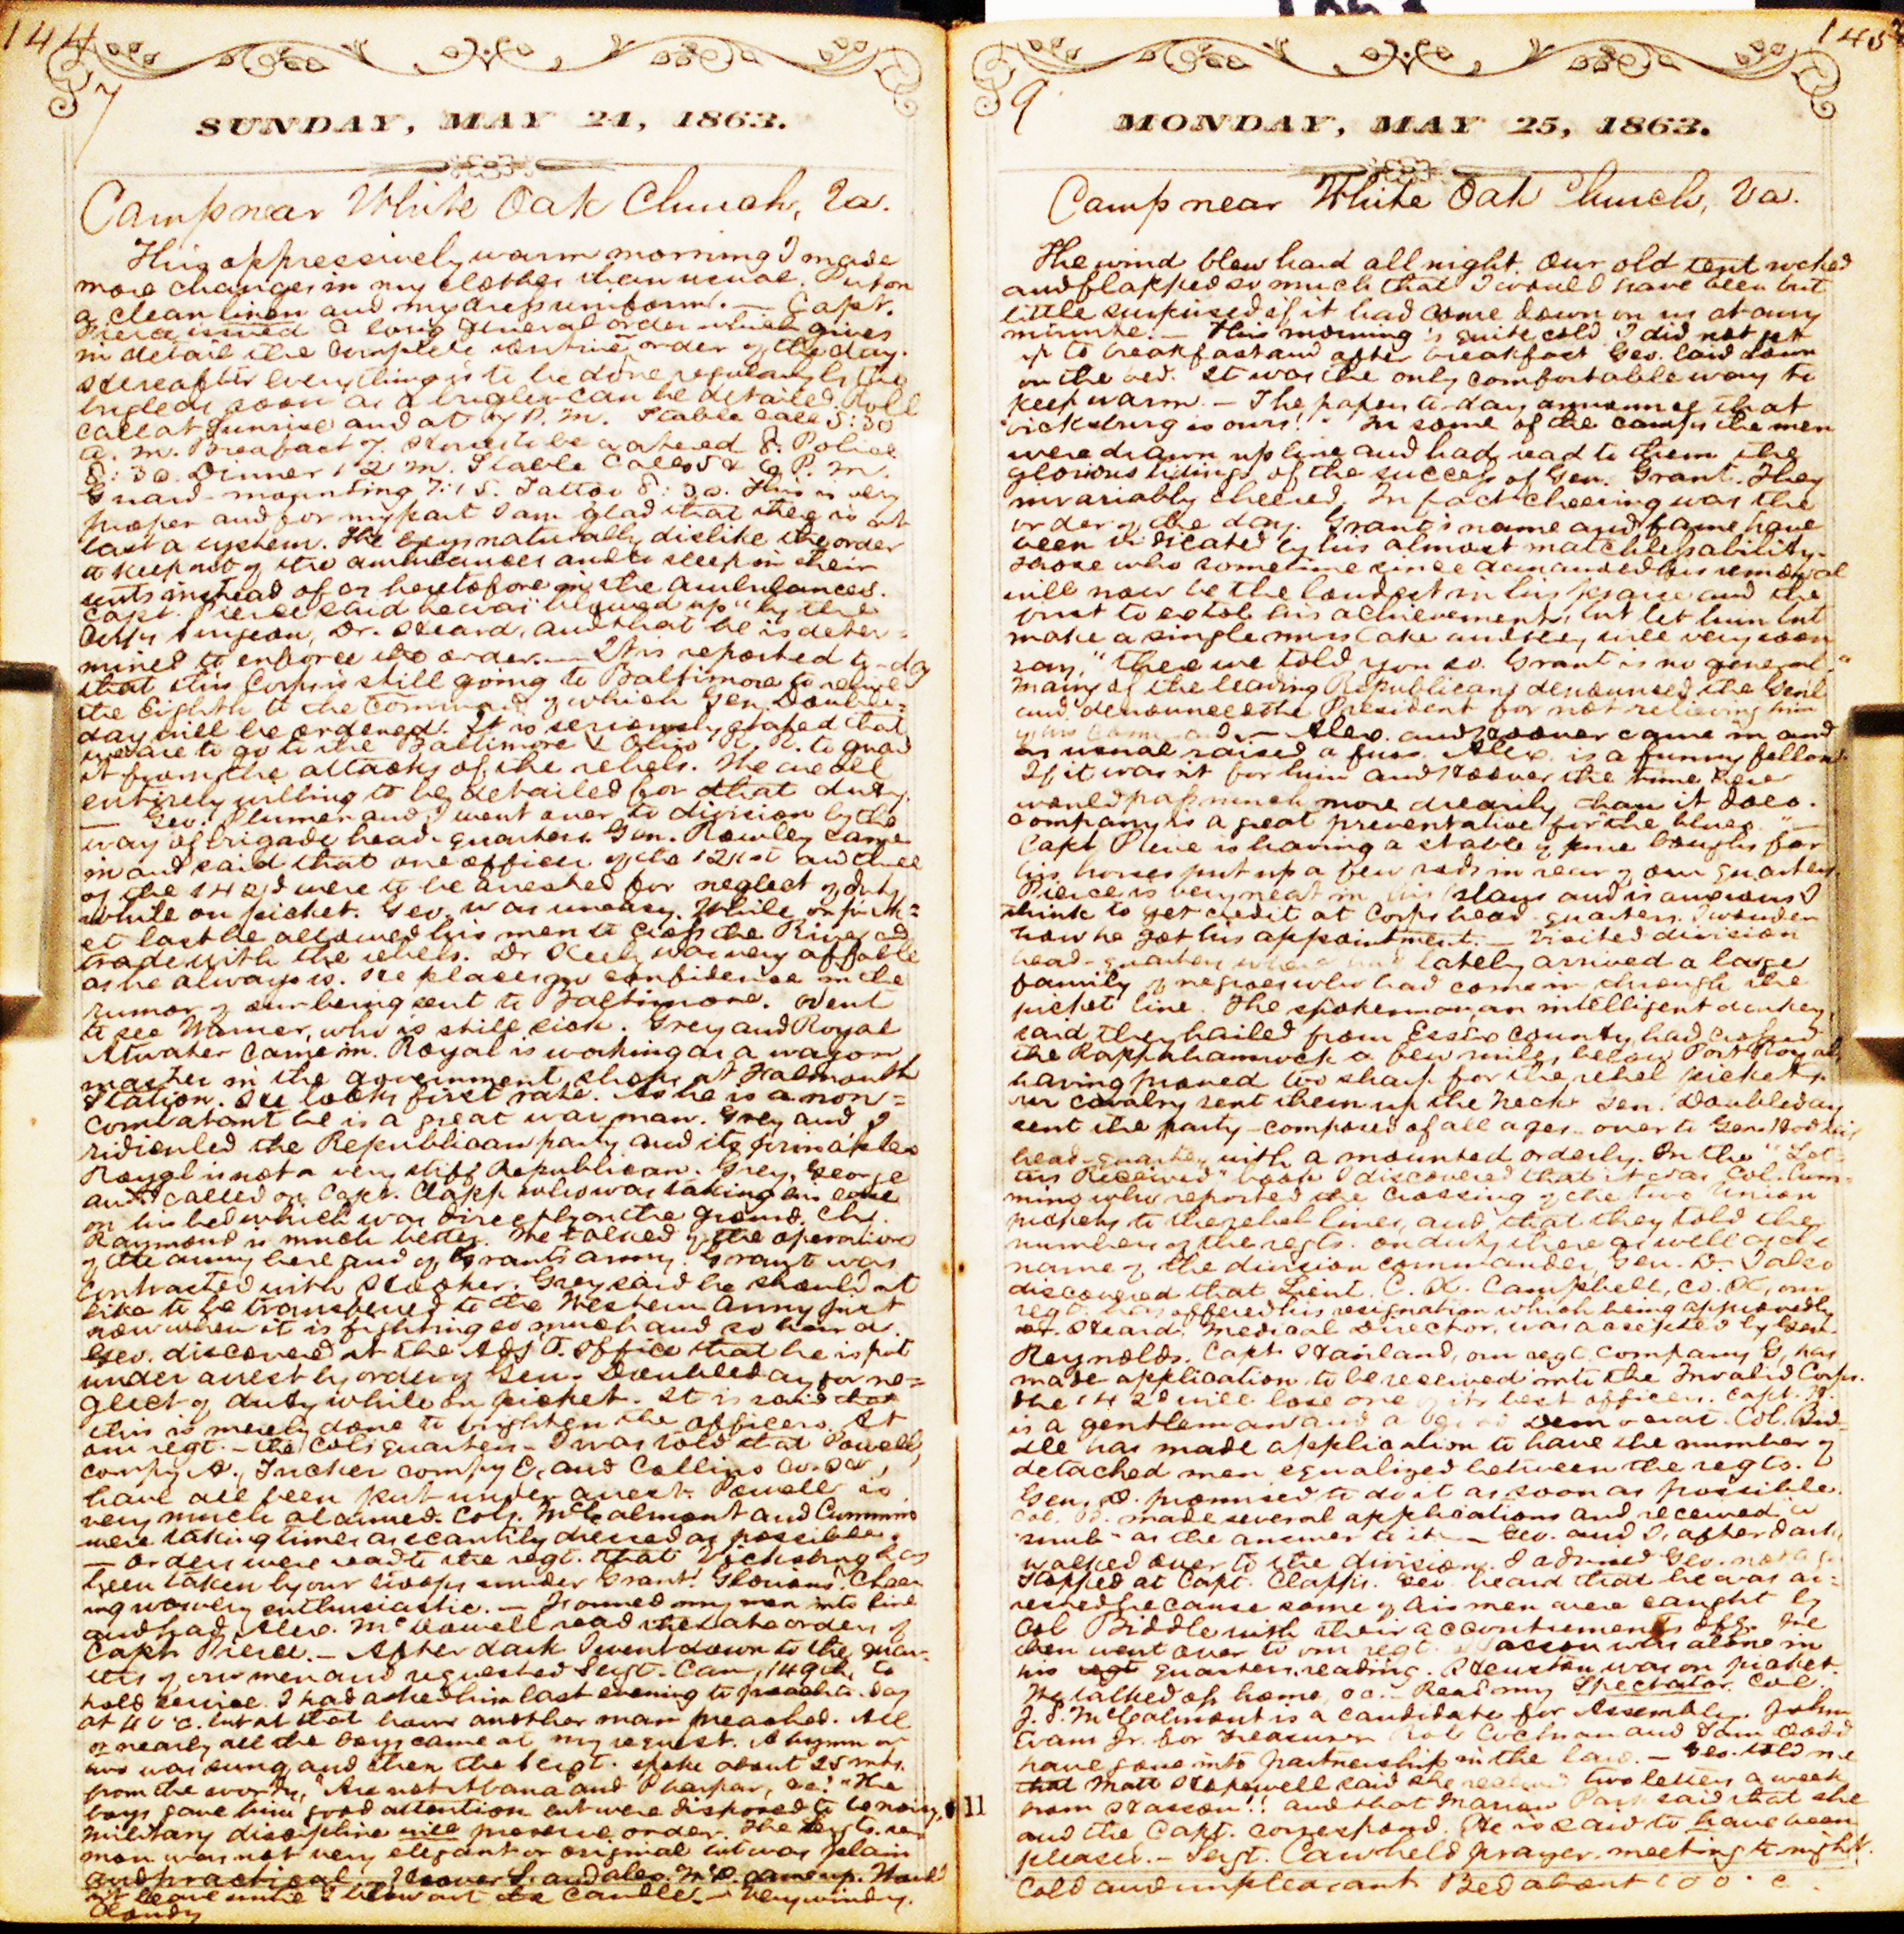 144
7
SUNDAY, MAY 24, 1863.
Camp near White Oak Church, Va.
This oppressively warm morning I made
more changes in my clothes than usual. Put on
a clean linen and my dress uniform. — Capt.
Pierce issued a long general order which gives
in detail the complete routine order of the day.
Hereafter everything is to be done regularly by the
bugle as soon as a bugler can be detailed. Roll
call at sunrise and at P. M. Stable call 5:30
a. m. Breakfast 7. Horses to be watered 8. Police
8:30. Dinner 12 m. Stable call 5 & 6 P. m.
Guard-mounting 7:15. Tattoo 8:30. This is very
proper and for my part I am glad that there is at
last a system. The boys naturally dislike the order
to keep out of the ambulances and to sleep in their
tents instead of as heretofore in the ambulances.
Capt. Pierce said he was "blowed up" by the
Surgeon, Dr. Heard, and that he is deter-
mined to enforce the order. — It is reported to-day
that this Corps is still going to Baltimore to relieve
the Eighth to the command of which Gen. Double-
day will be ordered. It is seriously hoped that
we are to go to the Baltimore & Ohio R. R. to guard
it from the attacks of the rebels. We are all
entirely willing to be detailed for that duty.
— Geo. Plumer and I went over to division by the
way of brigade head-quarters. Gen. Rowley came
in and said that one officer of the 121st and three
of the 142d were to be arrested for neglect of duty
while on picket. Geo. was uneasy. While on pick-
et last he allowed his men to cross the River and
trade with the rebels. Dr. was very affable
as he always is. He places no confidence in the
rumor of our being sent to Baltimore. Went
to see Warner, who is still sick. Grey and Royal
Atwater came in. Royal is working as a wagon
master in the government shops at Falmouth
Station. He looks first rate. As he is a non-
combatant he is a great war man. Grey and I
ridiculed the Republican party and its principles
Royal is not a very stiff Republican. Grey, George
and I called on Capt. Clapp who was taking his ease
on his bed which was directly on the ground. Ch.
Raymond is much better. We talked of the operations
of the army here and of Grant's army. Grant was
contrasted with Hooker. Grey said he should not
like to be transferred to the Western Army just
now when it is fighting so much and so hard.
Geo. discovered at the Adj't. Office that he is put
under arrest by order of Gen. Doubleday for ne-
glect of duty while on picket. It is said that
this is merely done to frighten the officers. At
our regt. — the Col's quarters — I was told that Powell,
compy A., Tucker compy E, and Collins Co.
have all been put under arrest. Powell is
very much alarmed. Cols. McCalmont and Cummins
were taking times as scantily dressed as possible.
— Orders were read to the regt. that Vicksburg has
been taken by our troops under Grant! Glorious! Cheer-
ing was very enthusiastic. — I formed my men into line
and had Alex. McDowell read the late orders of
Capt. Pierce. — After dark I went down to the quar-
ters of our men and requested Sergt. Caw, 149th to
hold service. I had asked him last evening to preach to-day
at 4 o'c. but at that hour another man preached. All
or nearly all the boys came at my request. A hymn or
two was sung and then the Sergt. spoke about 25 mts.
from the words, "Are not Abana and Pharpar, &c." The
boys gave him good attention but were disposed to be noisy.
Military discipline will preserve order. The Sergt's. ser-
mon was not very elegant or original but was plain
and practical. — Hoover and Alex. McD. came up. Wouldn't
leave until I blew out the candles. — Very windy.
Cloudy
145
9
MONDAY, MAY 25, 1863.
Camp near White Oak Church, Va.
The wind blew hard all night. Our old tent rocked
and flapped so much that I would have been but
little surprised if it had come down on us at any
minute. — This morning is quite cold. I did not get
up to breakfast and after breakfast Geo. laid down
on the bed. It was the only comfortable way to
keep warm. — The papers to-day announce that
"Vicksburg is ours!" In some of the camps the men
were drawn up line and had read to them the
glorious tidings of the success of Gen. Grant. They
invariably cheered, In fact cheering was the
order of the day. Grant's name and fame have
been vindicated by his almost matchless ability.
Those who sometime since demanded his removal
will now be the loudest in his praise and the
first to extol his achievements, but let him but
make a single mistake and they will very soon
say, "there we told you so. Grant is no general."
Many of the leading Republicans denounced the Gen'l
and denounced the President for not relieving him
of his command. — Alex. and Hoover came in and
as usual raised a fuss. Alex. is a funny fellow.
If it was n't for him and Hoover the time here
would pass much more drearily than it does.
Company is a great preventative for "the blues." —
Capt. Pierce is having a stable of pine boughs for
his horses put up a few rods in rear of our quarters.
Pierce is very neat in his ways and is anxious I
think to get credit at Corps head-quarters. I wonder
how he got his appointment. — Visited division
head-quarters where had lately arrived a large
family of negroes who had come in through the
picket line. The spokesman an intelligent darkey,
said they hailed from Essex county, had crossed
the Rappahannock a few miles below Port Royal,
having proved too sharp for the rebel pickets.
Our cavalry sent them up the Neck. Gen. Doubleday
sent the party — composed of all ages — over to Gen.
head-quarters with a mounted orderly. In the "Let-
ters Received" book I discovered that it was Col. Cum-
ming who reported the crossing of the two Union
pickets to the rebel lines, and that they told the
number of the regts. on duty there as well as the
name of the division commander, Gen. D. I also
discovered that Lieut. C. H. Campbell, Co. our
regt. has offered his resignation which being approved by
Dr. Heard, Medical Director, was accepted by Gen.
Reynolds. Capt. our regt. Company G, has
made application to be received into the Invalid Corps.
The 142d will lose one of its best officers. Capt. H.
is a gentleman and a good Democrat. Col. Bid-
dle has made application to have the number of
detached men equalized between the regts.
Gen. D. promised to do it as soon as possible.
Col. made several applications and received a
"snub" as the answer to it. — Geo. and I, after dark,
walked over to the division. I advised Geo. not
Stopped at Capt. Clapp's. Geo. heard that he was ar-
rested because some of his men were caught by
Col Biddle with their accoutrements off. We
then went over to our regt. Hasson was alone in
his regt quarters reading. was on picket.
We talked of home, &c. — Read my Spectator. Col.
J. S. McCalmont is a candidate for Assembly. John
Evans Jr. for Treasurer. Rob Cochran and Sam
have gone into partnership in the law. — Geo. told me
that Matt said she received two letters a week
from Hasson!! and that Marian said that she
and the Capt. correspond. He is said to have been
pleased. — Sergt. Caw held prayer-meeting to-night.
Cold and unpleasant. Bed about o'c.
11